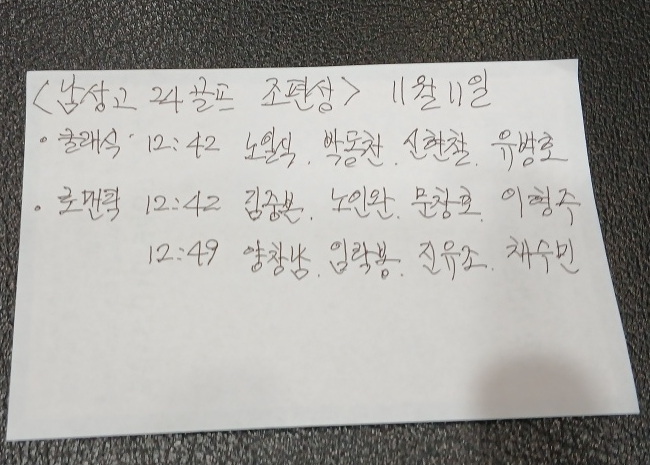 <남상고 24골프 조편성> 11월11일
• 클래식 12:42 노일식, 박동찬, 신현철, 유병호
• 로맨틱 12:42 김중본, 노인완, 문창호, 이형주
12:49 양창남, 임락봉, 진유조, 채수민